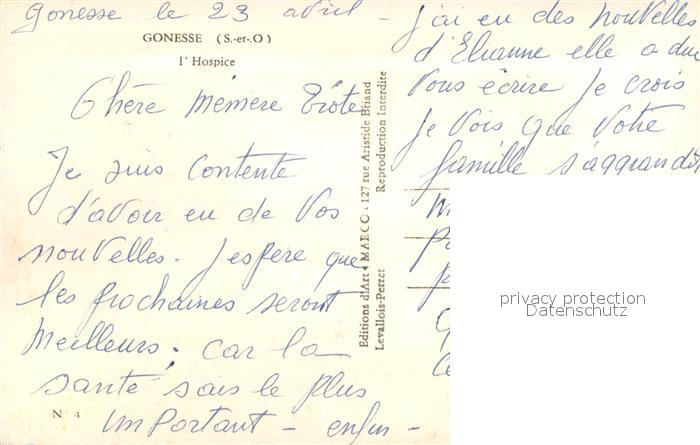 Gonesse le 23 avril -
GONESSE (S.-et-.O)
l'Hospice
Chère mémère Tiote
Je suis contente
d'avoir eu de Vos
nouvelles. J'espère que
les prochaines seront
meilleurs, car la
santé sais le plus
important - enfin -
N 4
Editions d'Art MARCO - 127 rue Aristide Briand
Levallois-Perret Reproduction Interdite
j'ai eu des nouvelles
d'Elianne elle a du
Vous écrire Je crois
Je Vois que Votre
famille s'aggrandit
privacy protection
Datenschutz